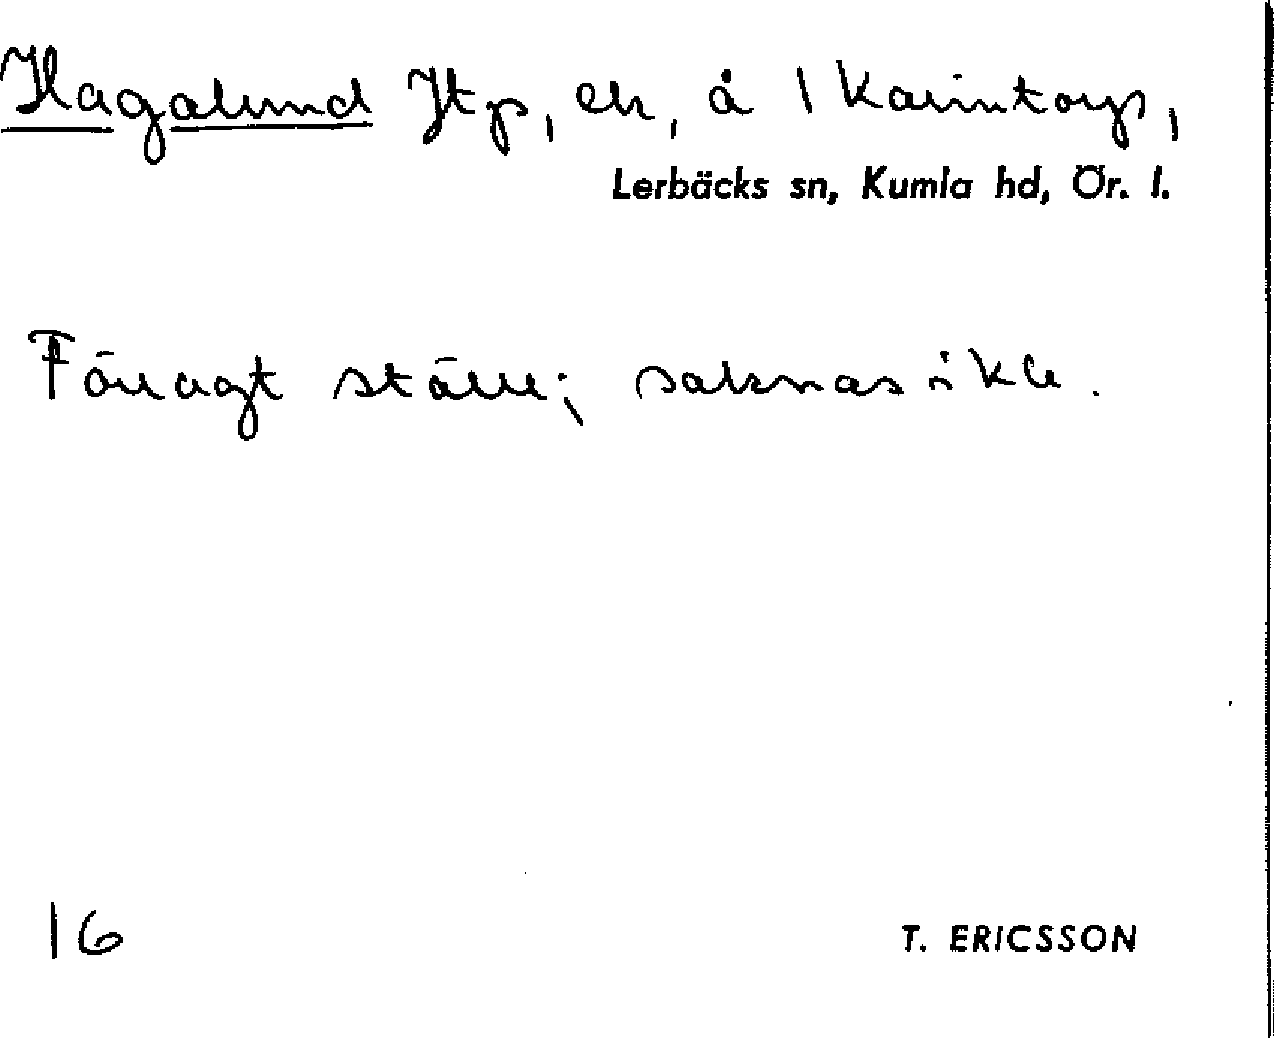 Hagalund Jtp, eh, å 1 Karintorp,
Lerbäcks sn, Kumla hd, Ör. l.
Föreragt ställe; saknas i kla.
16
T. ERICSSON